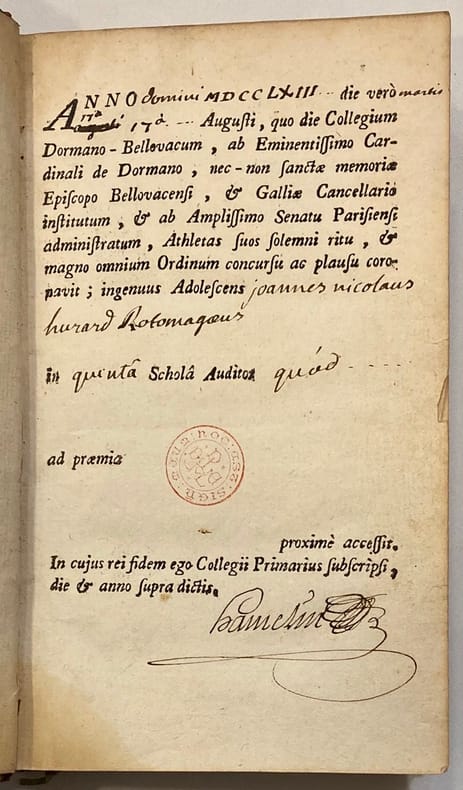 ANNO domini MDCCLXIII... die verò martis
17ª
17ª --- Augusti, quo die Collegium
Dormano-Bellovacum, ab Eminentiſſimo Car-
dinali de Dormano, nec-non ſanctæ memoriæ
Epiſcopo Bellovacenſi, & Galliæ Cancellario
inſtitutum, & ab Ampliſſimo Senatu Pariſienſi
adminiſtratum, Athletas ſuos ſolemni ritu, &
magno omnium Ordinum concurſu ac plauſu coro-
navit; ingenuus Adoleſcens joannes nicolaus
hurard Rotomagæus
in quintâ Scholâ Auditor quòd - - - - -
ad præmia
proximè acceſſit.
In cujus rei fidem ego Collegii Primarius ſubſcripſi,
die & anno ſupra dictis.
hamelin